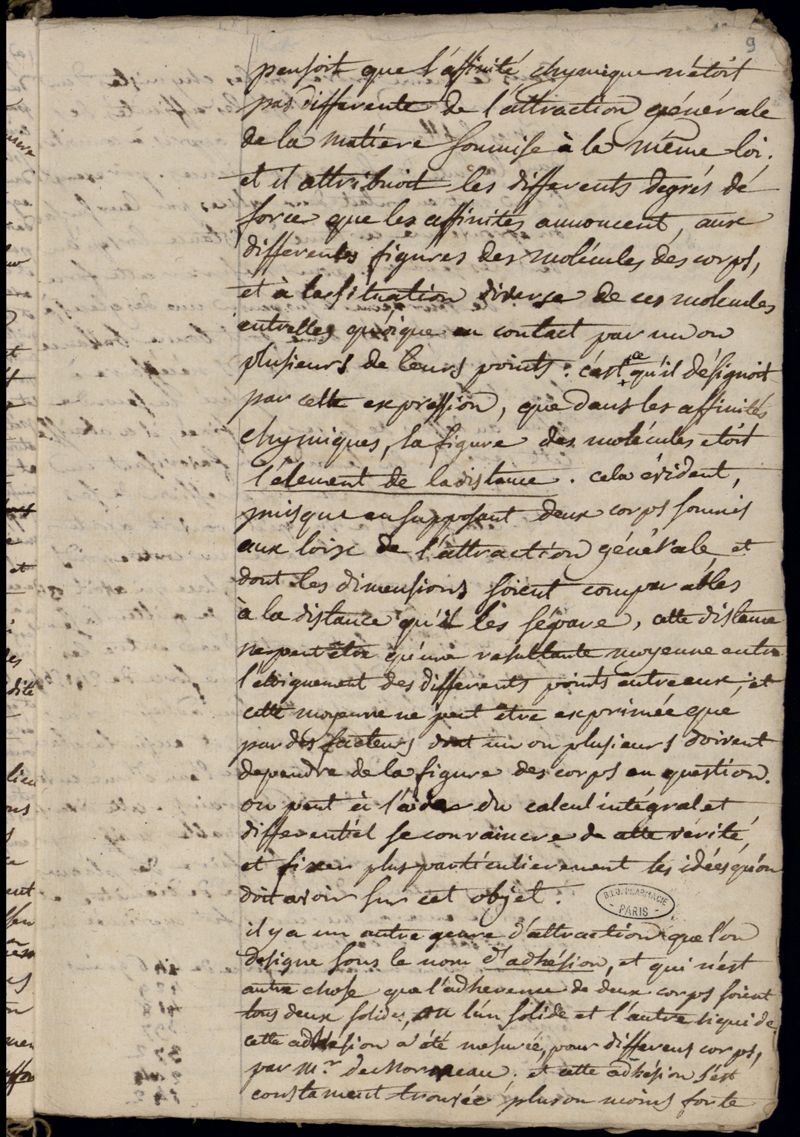 9
pensoit que l'affinité chymique n'étoit
pas differente de l'attraction générale
de la matiere soumise à la même loi;
et il attribuoit les differents degrés de
force que les affinités annoncent, aux
differentes figures des molécules des corps,
et à la situation diverse de ces molécules
entrelles quoique en contact par un ou
plusieurs de leurs points: c'est ce qu'il désignoit
par cette expression, que dans les affinités
chymiques, la figure des molécules étoit
l'élement de la distance. cela évident,
puisque en supposant deux corps soumis
aux loix de l'attraction générale et
dont les dimensions soient comparables
à la distance qu'il les sépare, cette distance
ne peut être qu'une resultante moyenne entre
l'eloignement des differents points entre eux, et
cette moyenne ne peut être exprimée que
par des facteurs dont un ou plusieurs doivent
dependre de la figure des corps en question.
on peut à l'aide du calcul intégral et
differentiel se convaincre de cette vérité,
et fixer plus particulierement les idées qu'on
doit avoir sur cet objet.
B.I.U. PHARMACIE
PARIS
il y a un autre genre d'attraction que l'on
designe sous le nom d'adhésion, et qui n'est
autre chose que l'adherence de deux corps soient
tous deux solides, ou l'un solide et l'autre liquide.
cette adhésion a été mesurée, pour differens corps,
par mr. de Morveau. et cette adhésion s'est
constament trouvée plus ou moins forte